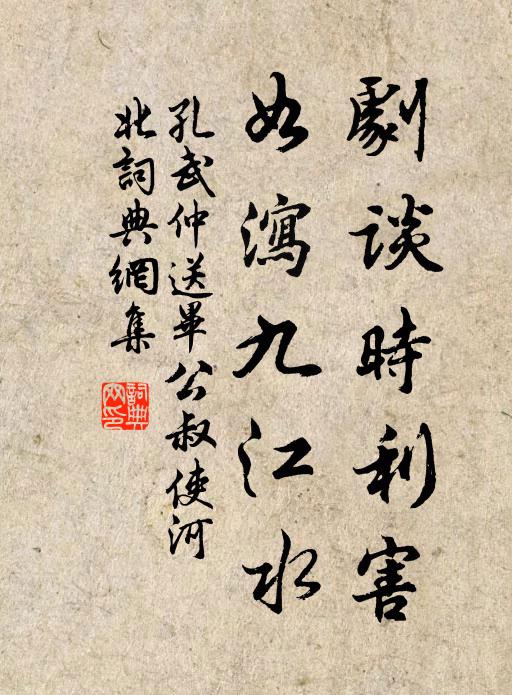 劇談時利害
如瀉九江水
孔武仲送畢公叔使河
北詞典網集
詞典网印